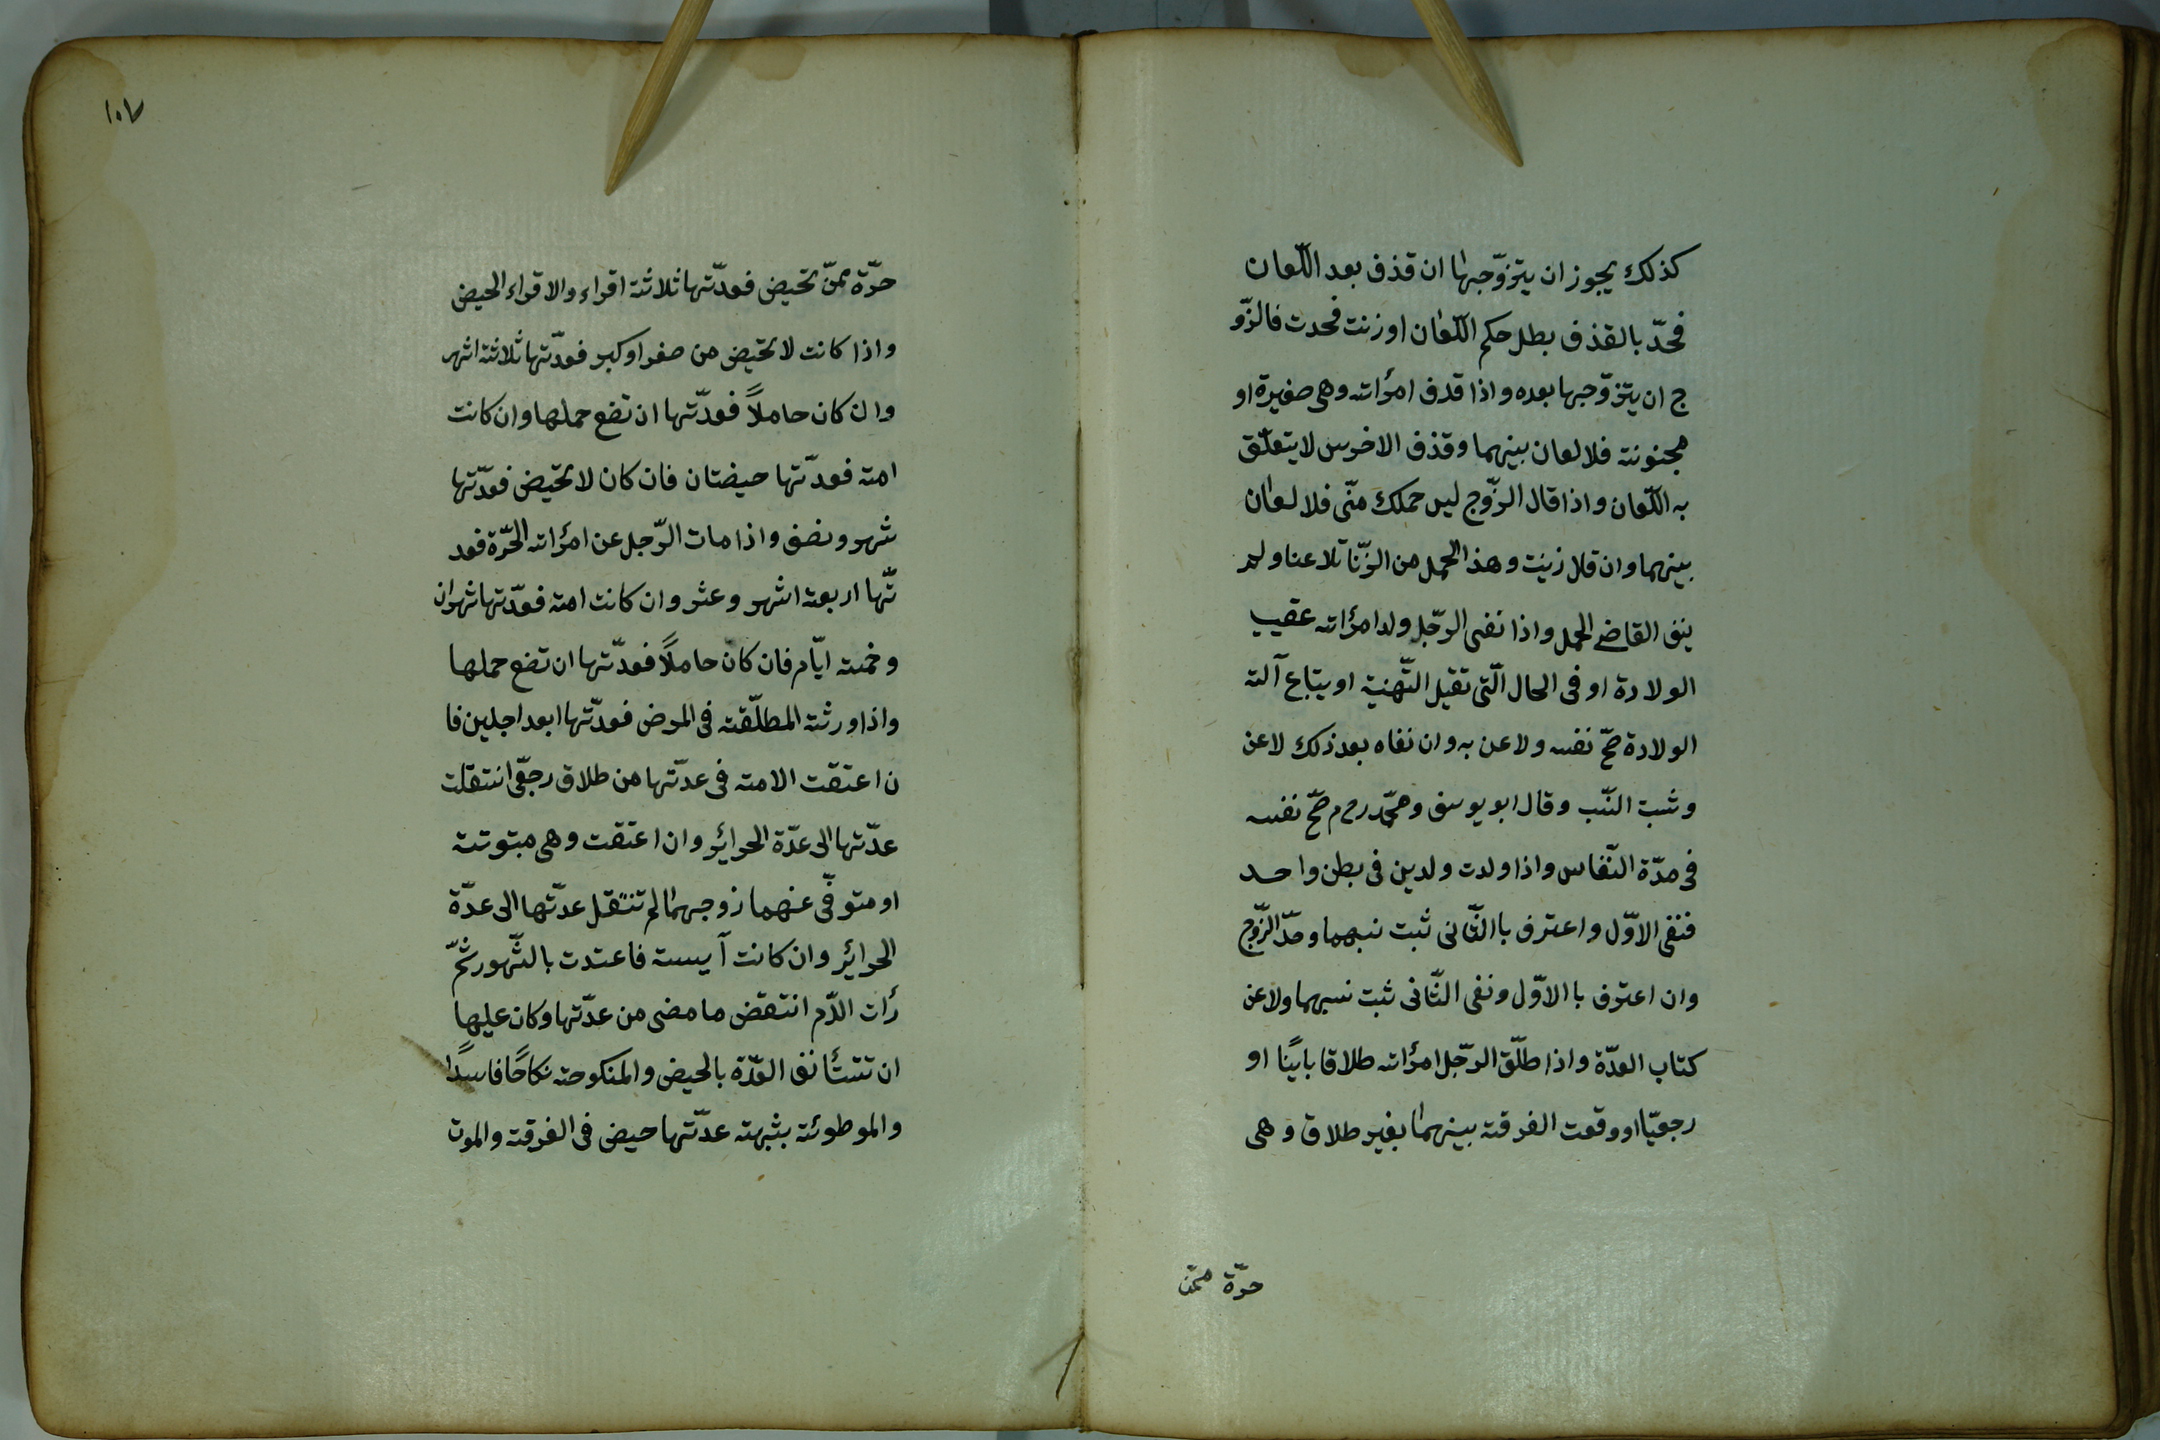 كذلك يجوز ان يتزوّجها ان قذف بعد اللّعان
فحدّ بالقذف بطل حكم اللّعان او زنت فحدت فالزّو
ج ان يتزوّجها بعده واذا قدف امرأته وهى صغيرة او
مجنونته فلا لعان بينهما وقذف الاخرس لا يتعلّق
به اللّعان واذا قال الزّوج ليس حملك منّى فلا لعان
بينهما وان قال زنيت وهذا الحمل من الزّنا تلاعنا ولم
ينف القاضے الحمل واذا نفى الرّجل ولد امرأته عقيب
الولادة او فى الحال الّتى تقيل التّهنية او يبتاع آلته
الولادة صحّ نفسه ولاعن به وان نفاه بعد ذلك لاعن
وثبت النّسب وقال ابو يوسف ومحمّد رحم صحّ نفسه
فى مدّة النّفاس واذا ولدت ولدين فى بطن واحد
فنفى الاوّل واعترف باالثّانى ثبت نسبهما وحدّ الزّوج
وان اعترف باالاوّل ونفى الثّانى ثبت نسبهما ولاعن
كتاب العدّة واذا طلّق الرّجل امرأته طلاقا بائنًا او
رجعيّا او وقعت الفرقته بينهما بغير طلاق وهى
حرّة ممّن
١٠٧
حرّة ممّن تحيض فعدّتها ثلاثته اقراء والاقراء الحيض
واذا كانت لا تحيض من صغر او كبر فعدّتها ثلاثته اشهر
وان كان حاملاً فعدّتها ان تضع حملها وان كانت
امته فعدّتها حيضتان فان كان لا تحيض فعدّتها
شهر ونصف واذا مات الرّجل عن امرأته الحرّة فعد
تّها اربعته اشهر وعشر وان كانت امته فعدّتها شهران
وخمسته ايّام فان كان حاملاً فعدّتها ان تضع حملها
واذا ورثته المطلّقته فى المرض فعدّتها ابعد اجلين فا
ن اعتقت الامته فى عدّتها من طلاق رجعّى انتقلت
عدّتها الى عدّة الحرائر وان اعتقت وهى مبتوتته
او متوفّى عنهما زوجهما لم تنتقل عدّتها الى عدّة
الحرائر وان كانت آيسته فاعتدت بالشّهور ثمّ
رأت الدّم انتقض ما مضى من عدّتها وكان عليها
ان تستأنف العدّة بالحيض والمنكوحته نكاحًا فاسدًا
والموطوئته بشبهته عدّتها حيض فى الفرقته والموت